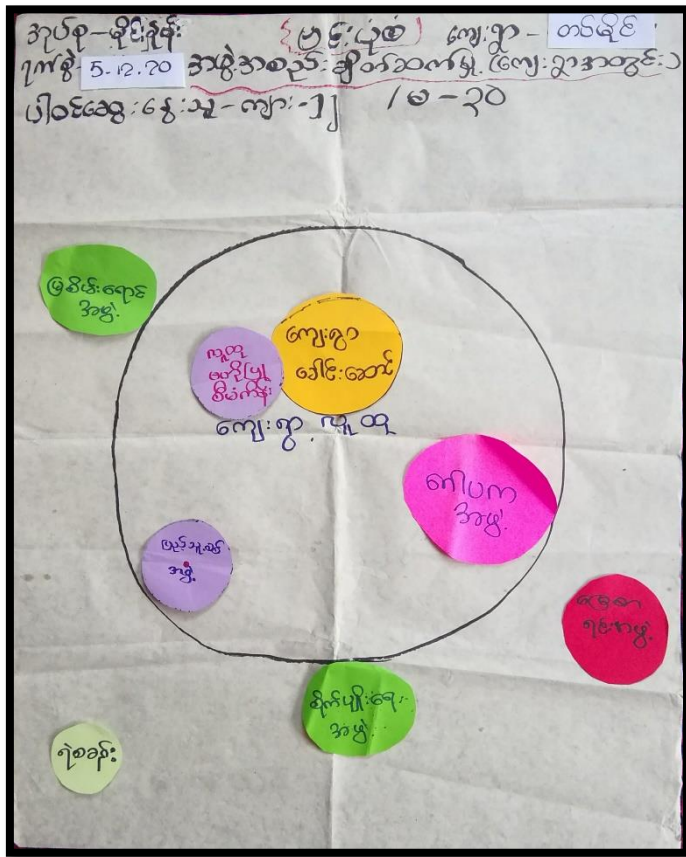 အုပ်စု-မိုင်းနိုမ်း (မြင်းပုံစံ) ကျေးရွာ - တပ်မိုင်
ရက်စွဲ 5.12.20 အဖွဲ့အစည်းချိတ်ဆက်မှု (ကျေးရွာအတွင်း)
ပါဝင်ဆွေးနွေးသူ - ကျား-၂၂ / မ - ၃၀
မြစိမ်းရောင်
အဖွဲ့
လူထု
ဗဟိုပြု
စီမံကိန်း
ကျေးရွာ
ခေါင်းဆောင်
ကျေးရွာ လူထု
ဂေါပက
အဖွဲ့
ပြည်သူ့စစ်
အဖွဲ့
ရင်းအဖွဲ့
စိုက်ပျိုးရေး
အဖွဲ့
ရဲစခန်း